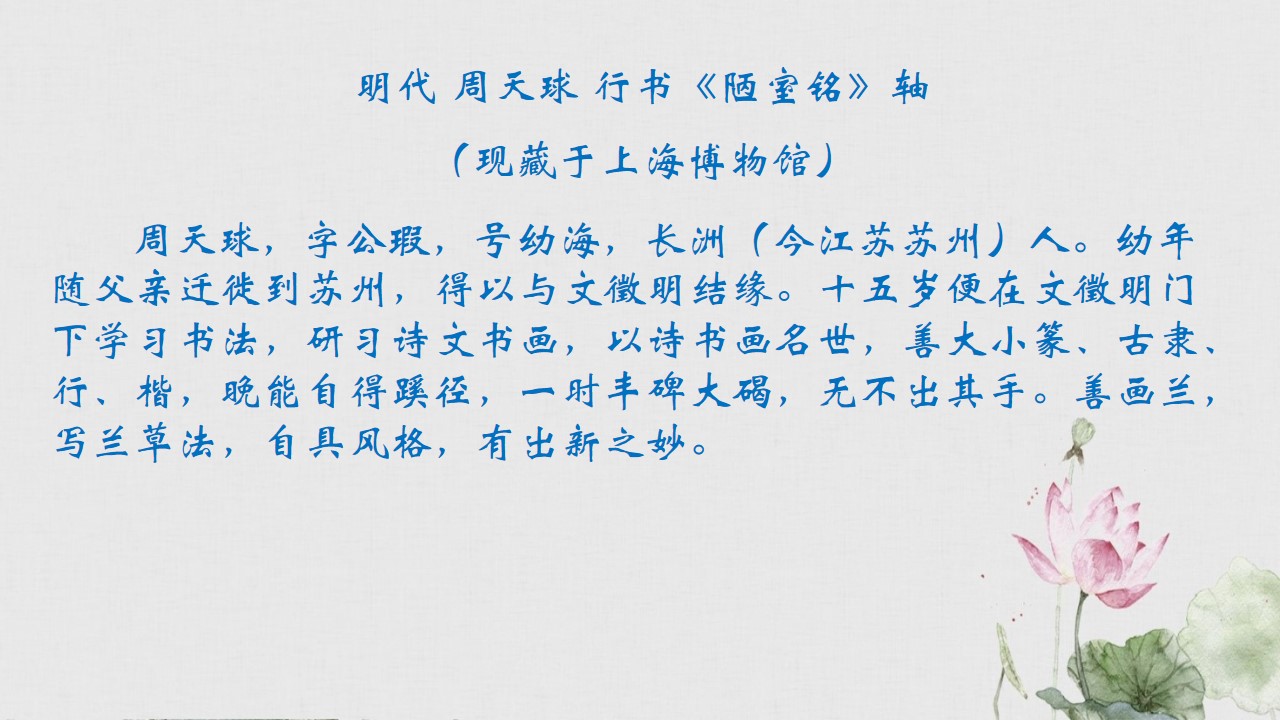 明代 周天球 行书《陋室铭》轴
（现藏于上海博物馆）
周天球，字公瑕，号幼海，长洲（今江苏苏州）人。幼年
随父亲迁徙到苏州，得以与文徵明结缘。十五岁便在文徵明门
下学习书法，研习诗文书画，以诗书画名世，善大小篆、古隶、
行、楷，晚能自得蹊径，一时丰碑大碣，无不出其手。善画兰，
写兰草法，自具风格，有出新之妙。